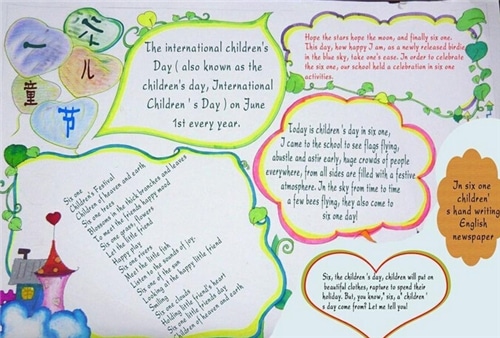 六
一
儿
童
节
The international children's
Day ( also known as the
children's day, International
Children ' s Day ) on June
1st every year.
Hope the stars hope the moon, and finally six one.
This day, how happy I am, as a newly released birdie
in the blue sky, take one's ease. In order to celebrate
the six one, our school held a celebration in six one
activities.
Today is children 's day in six one,
I came to the school to see flags flying,
abustle and astir early, huge crowds of people
everywhere, from all sides are filled with a festive
atmosphere. In the sky from time to time
a few bees flying, they also come to
six one day!
In six one
children'
s hand writing
English
newspaper
Six one
Children's Festival
Children of heaven and earth
Six one trees
Blossoms in the thick branches and leaves
To meet the friends happy mood
Six one green, flowers
Let the little friend
Happy play
Six one rivers
Meet the little fish
Listen to the sounds of joy.
Six one of the sun
Looking at the happy little friend
Smiling
Six one clouds
Holding little friend's heart
Six one little friends day
Children of heaven and earth
Six, the children's day, children will put on
beautiful clothes, rapture to spend their
holiday. But, you know," six, a" children' s
day come from? Let me tell you!